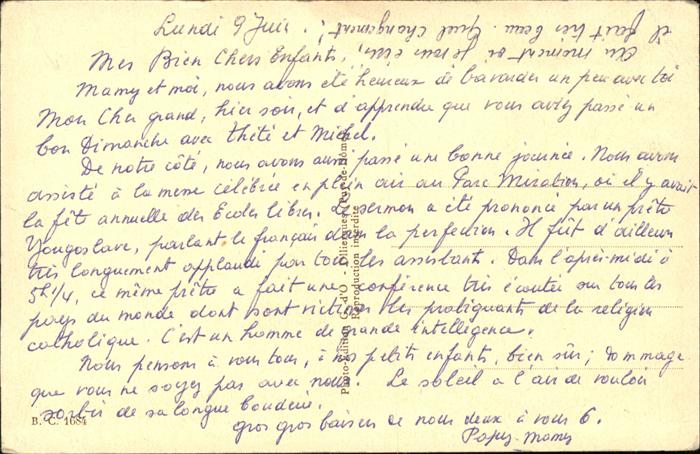 Lundi 9 Juin.
Au moment où je vous écris,
il fait très beau. Quel changement!
Mes Bien Chers Enfants,
Mamy et moi, nous avons été heureux de bavarder un peu avec toi
Mon Cher grand, hier soir, et d'apprendre que vous aviez passé un
bon Dimanche avec Thété et Michel.
De notre côté, nous avons aussi passé une bonne journée. Nous avons
assisté à la messe célébrée en plein air au Parc Mirabeau, où il y avait
la fête annuelle des Ecoles libres. Le sermon a été prononcé par un prêtre
Yougoslave, parlant le français dans la perfection. Il fût d'ailleurs
très longuement applaudi par tous les assistants. Dans l'après-midi à
5h1/4, ce même prêtre a fait une conférence très écoutée sur tous les
pays du monde dont sont victimes les pratiquants de la religion
catholique. C'est un homme de grande intelligence.
Nous pensons à vous tous, à nos petits enfants, bien sûr; dommage
que vous ne soyez pas avec nous. Le soleil a l'air de vouloir
sortir de sa longue bouderie.
gros gros baisers de nous deux à vous 6.
Papy-Mamy
B. C. 1684
Photo-Edition d'O - Olliergues (Puy-de-Dôme)
Reproduction interdite